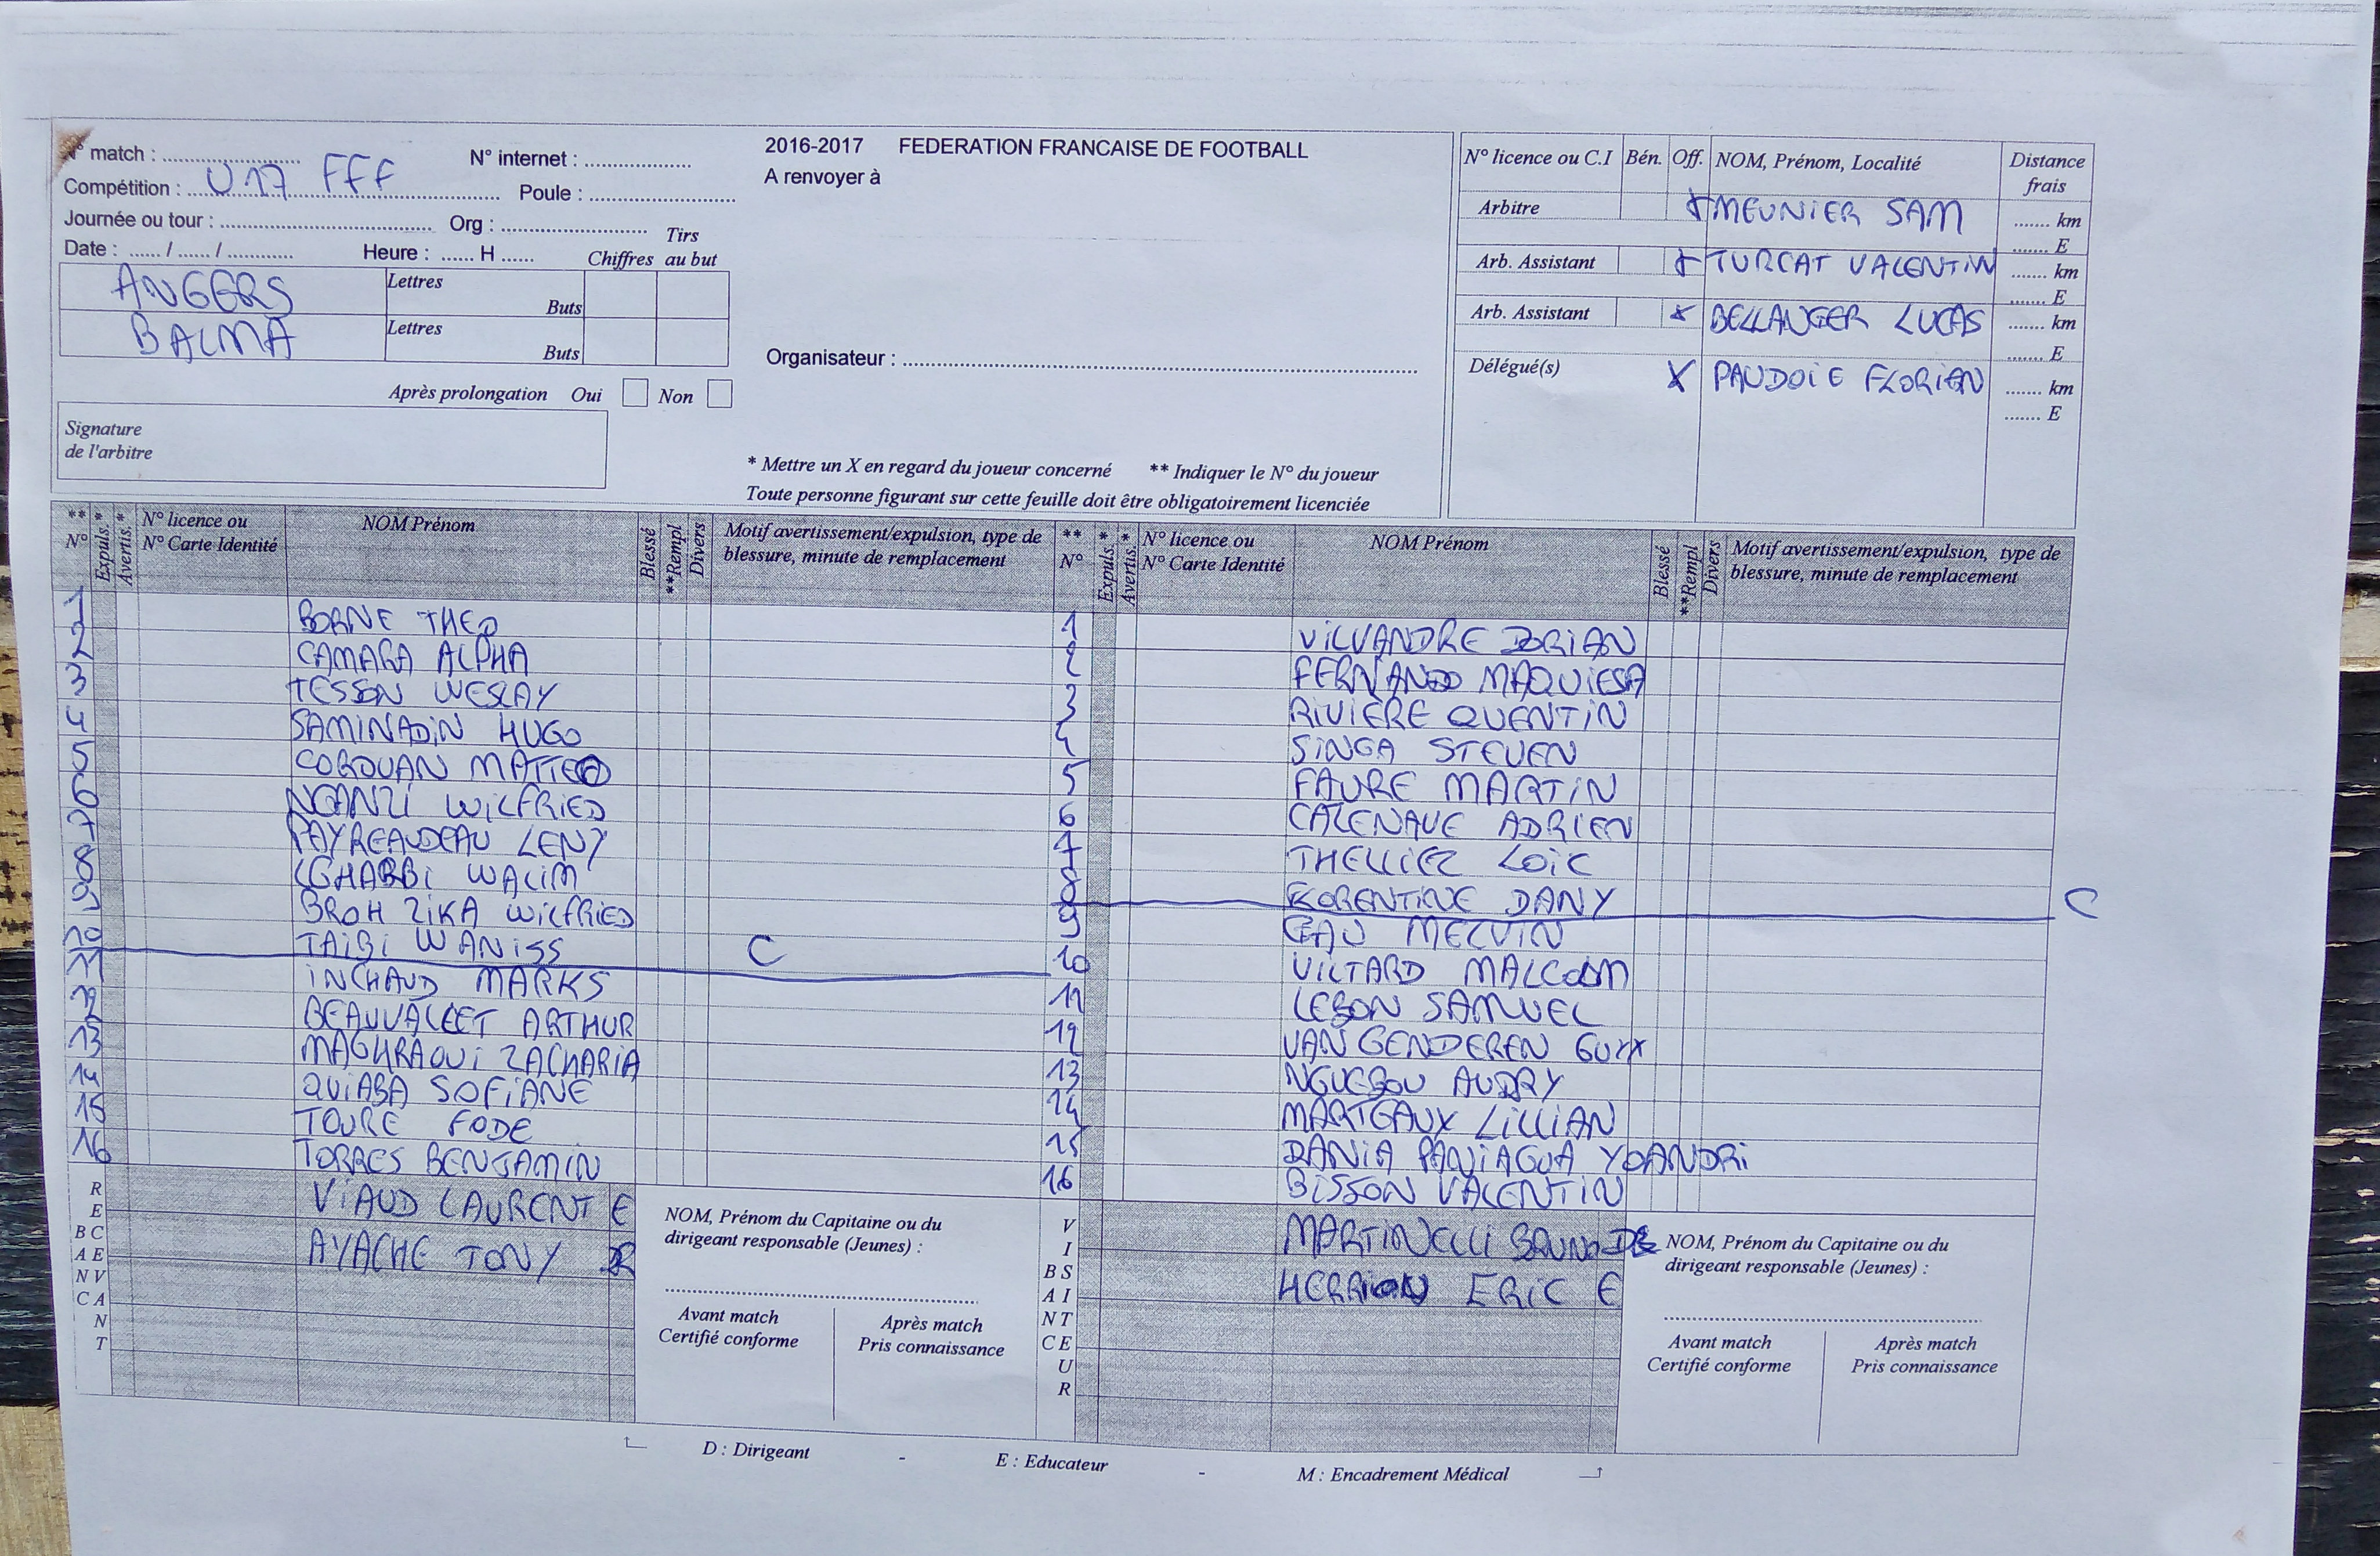 N° match : ........................ N° internet : ...................
Compétition : U17 FFF Poule : ...........................
Journée ou tour : ....................................... Org : ...........................
Date : ...... / ...... / ............. Heure : ...... H ......
Chiffres Tirs au but
ANGERS Lettres Buts
BALMA Lettres Buts
Après prolongation Oui Non
Signature
de l'arbitre
2016-2017 FEDERATION FRANCAISE DE FOOTBALL
A renvoyer à
Organisateur : ....................................................
* Mettre un X en regard du joueur concerné ** Indiquer le N° du joueur
Toute personne figurant sur cette feuille doit être obligatoirement licenciée
N° licence ou C.I Bén. Off. NOM, Prénom, Localité Distance frais
Arbitre X MEUNIER SAM ....... km
....... E
Arb. Assistant X TURCAT VALENTIN ....... km
....... E
Arb. Assistant X BELLANGER LUCAS ....... km
....... E
Délégué(s) X PAUDOIE FLORIAN ....... km
....... E
** N° Expuls. * Avertis. * N° licence ou N° Carte Identité NOM Prénom Blessé **Rempl Divers Motif avertissement/expulsion, type de blessure, minute de remplacement
1 BORNE THEO
2 CAMARA ALPHA
3 TESSON WESLAY
4 SAMINADIN HUGO
5 COROUAN MATTEO
6 NGANZI WILFRIED
7 PAYREAUDEAU LENY
8 LGHABBI WALIM
9 BROH ZIKA WILFRIED
10 TAIBI WANISS C
11 INCHAUD MARKS
12 BEAUVALLET ARTHUR
13 MAGHRAOUI ZACHARIA
14 QUIABA SOFIANE
15 TOURE FODE
16 TORRES BENJAMIN
RECEVANT
BANC
VIAUD LAURENT E
AYACHE TONY
NOM, Prénom du Capitaine ou du
dirigeant responsable (Jeunes) :
....................................................
Avant match
Certifié conforme
Après match
Pris connaissance
** N° Expuls. * Avertis. * N° licence ou N° Carte Identité NOM Prénom Blessé **Rempl Divers Motif avertissement/expulsion, type de blessure, minute de remplacement
1 VILVANDRE DORIAN
2 FERNANDO MAQUIESA
3 RIVIERE QUENTIN
4 SINGA STEVEN
5 FAURE MARTIN
6 CAZENAVE ADRIEN
7 THELLIEZ LOIC
8 FLORENTINE DANY C
9 EAU MELVIN
10 VILTARD MALCOOM
11 LEBON SAMUEL
12 VAN GENDEREN
13 NGUEBOU AUDRY
14 MARTEAUX LILLIAN
15 DANIA PANIAGUA YOANDRI
16 BISSON VALENTIN
VISITEUR
BANC
MARTINELLI BRUNO D
HERRION ERIC E
NOM, Prénom du Capitaine ou du
dirigeant responsable (Jeunes) :
....................................................
Avant match
Certifié conforme
Après match
Pris connaissance
D : Dirigeant - E : Educateur - M : Encadrement Médical